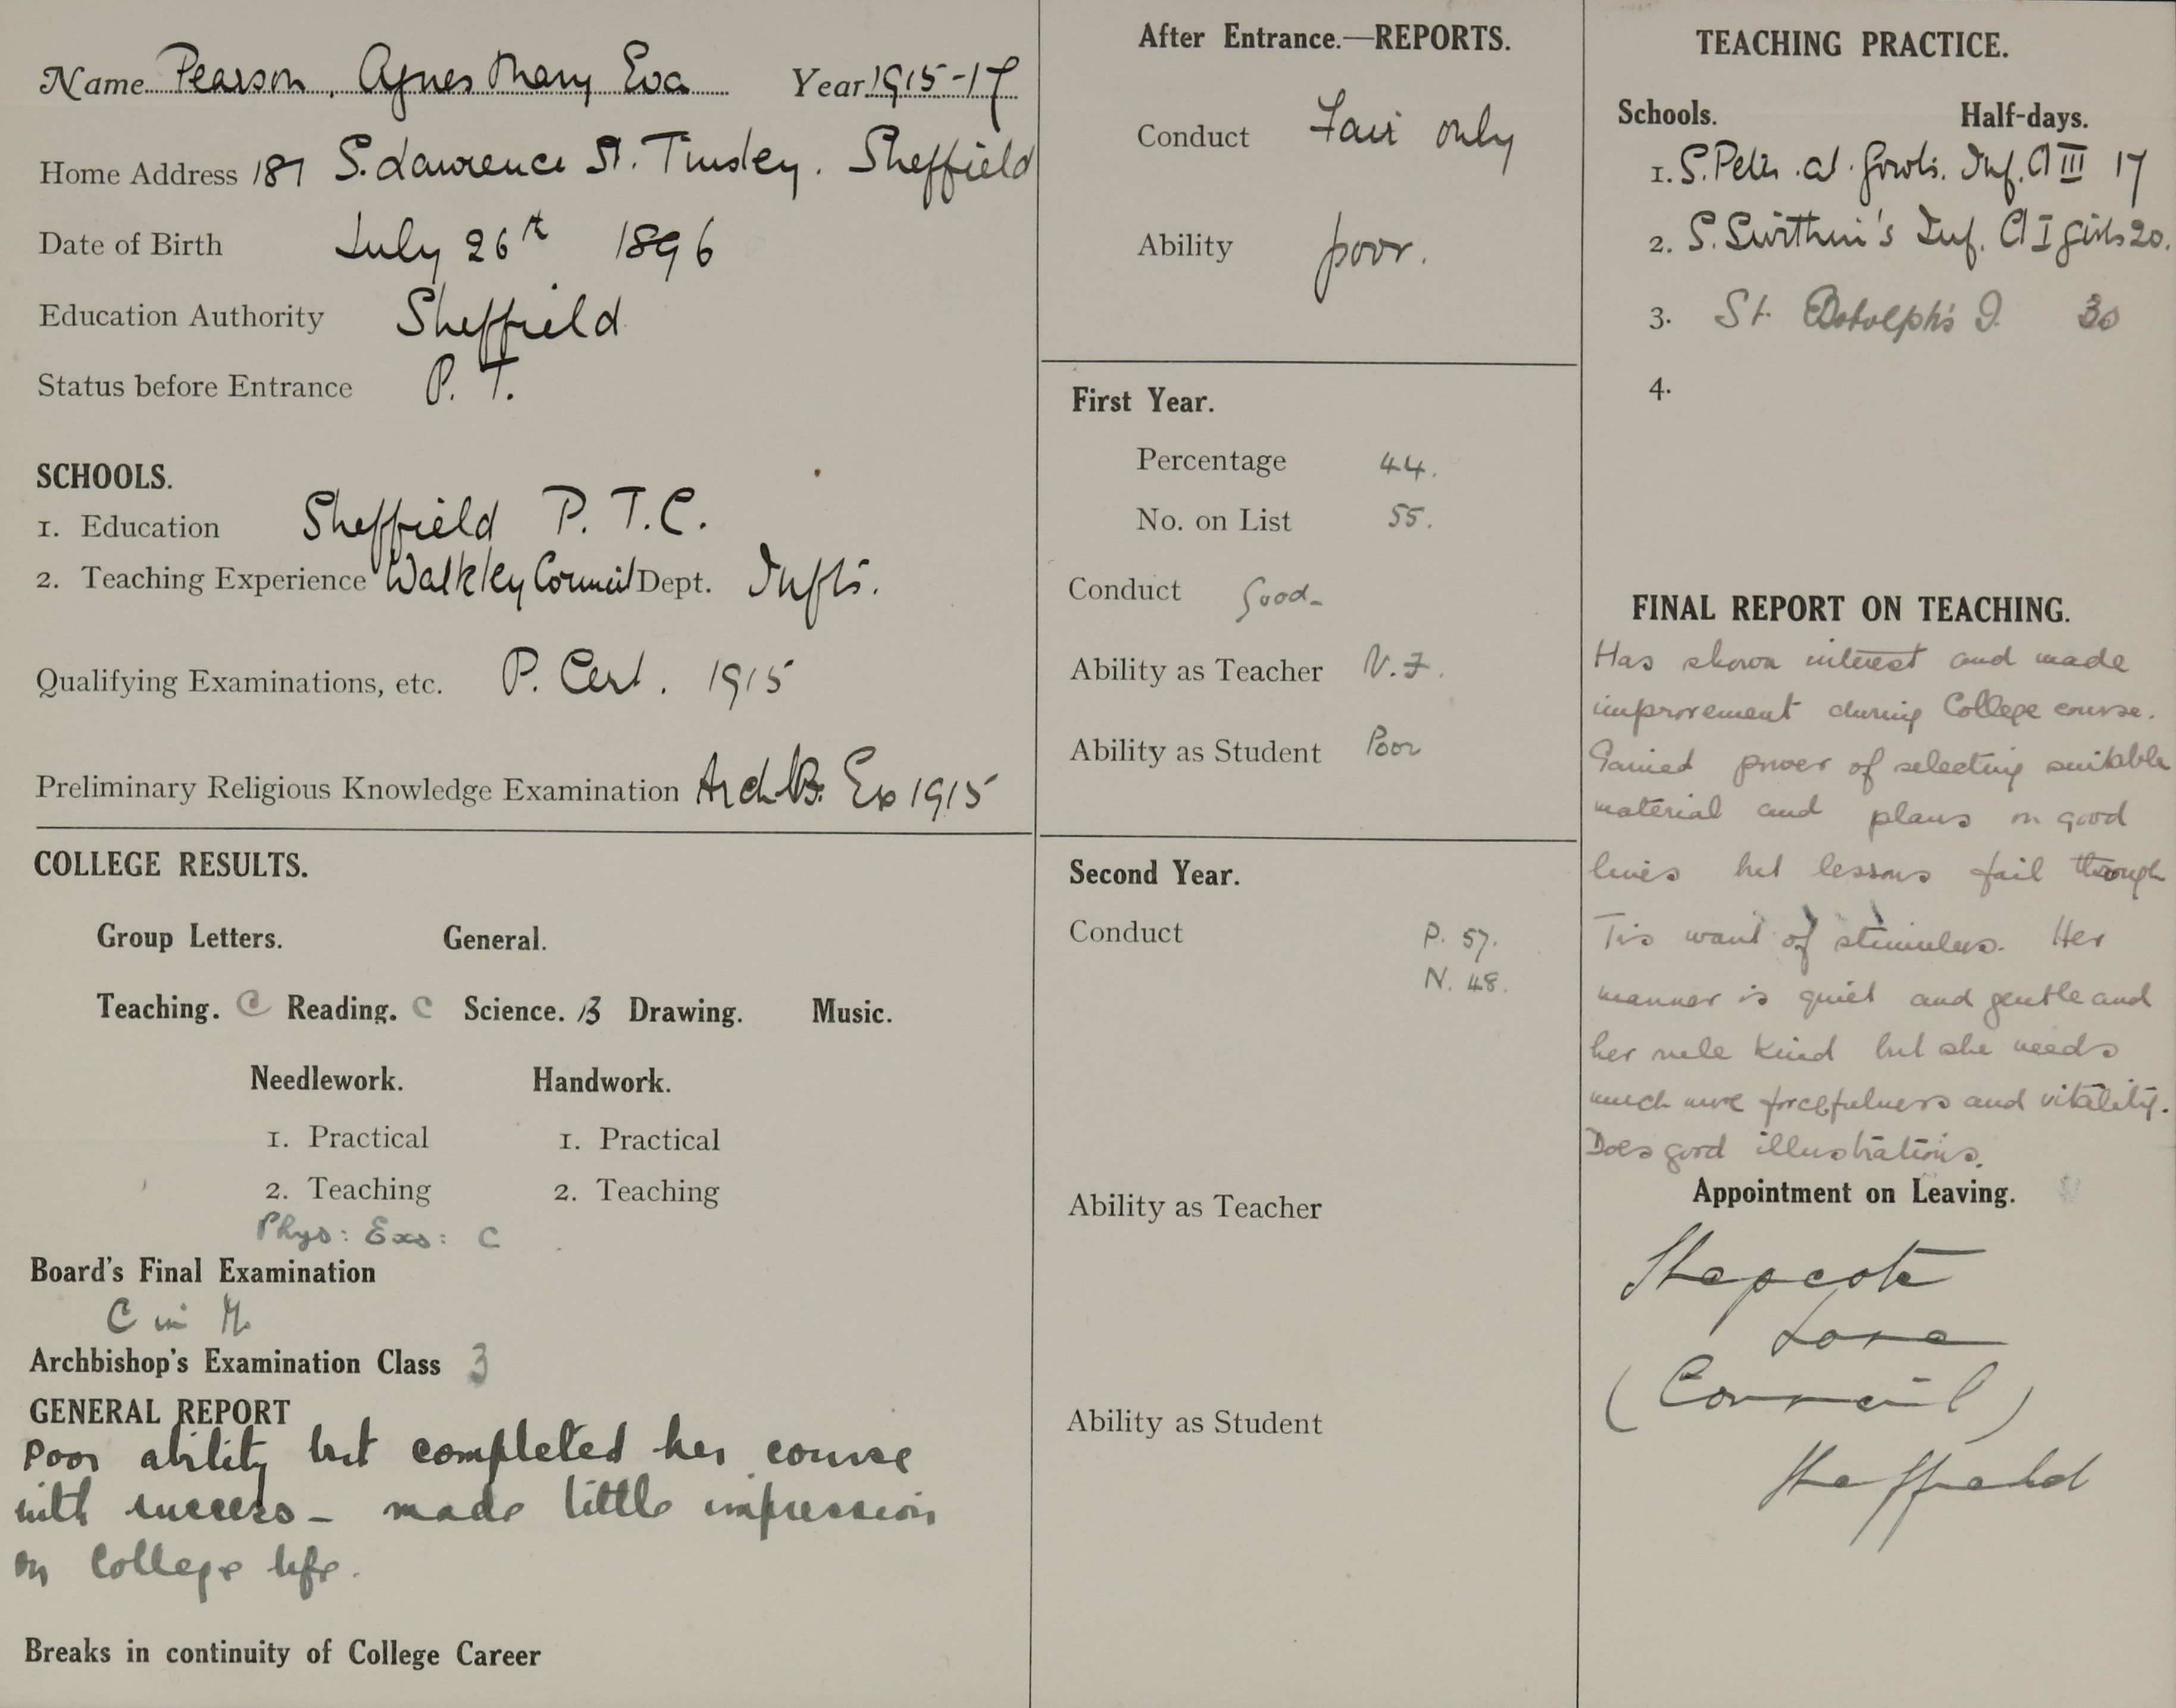 Name Pearson, Agnes Mary Eva Year 1915-17
Home Address 187 S. Lawrence St. Tinsley. Sheffield
Date of Birth July 26th 1896
Education Authority Sheffield
Status before Entrance P. T.
SCHOOLS.
1. Education Sheffield P. T. C.
2. Teaching Experience Walkley Council Dept. Infts.
Qualifying Examinations, etc. P. Cert. 1915
Preliminary Religious Knowledge Examination ArchB. Ex 1915
COLLEGE RESULTS.
Group Letters. General.
Teaching. C Reading. C Science. B Drawing. Music.
Needlework. Handwork.
1. Practical 1. Practical
2. Teaching 2. Teaching
Phys: Exs: C
Board's Final Examination
C in
Archbishop's Examination Class 3
GENERAL REPORT
Poor ability but completed her course
with success - made little impression
on College life.
Breaks in continuity of College Career
After Entrance.—REPORTS.
Conduct Fair only
Ability poor.
First Year.
Percentage 44.
No. on List 55.
Conduct Good-
Ability as Teacher V.F.
Ability as Student Poor
Second Year.
Conduct P. 57.
N. 48.
Ability as Teacher
Ability as Student
TEACHING PRACTICE.
Schools. Half-days.
1. S. Peter at Gowts. Inf. Cl III 17
2. S. Swithin's Inf. Cl I girls 20.
3. St. Botolph's I. 30
4.
FINAL REPORT ON TEACHING.
Has shown interest and made
improvement during College course.
Gained power of selecting suitable
material and plans on good
lines but lessons fail through
want of stimulus. Her
manner is quiet and gentle and
her rule kind but she needs
much more forcefulness and vitality.
Does good illustrations.
Appointment on Leaving.
Shepcote
Lane
(Council)
Sheffield